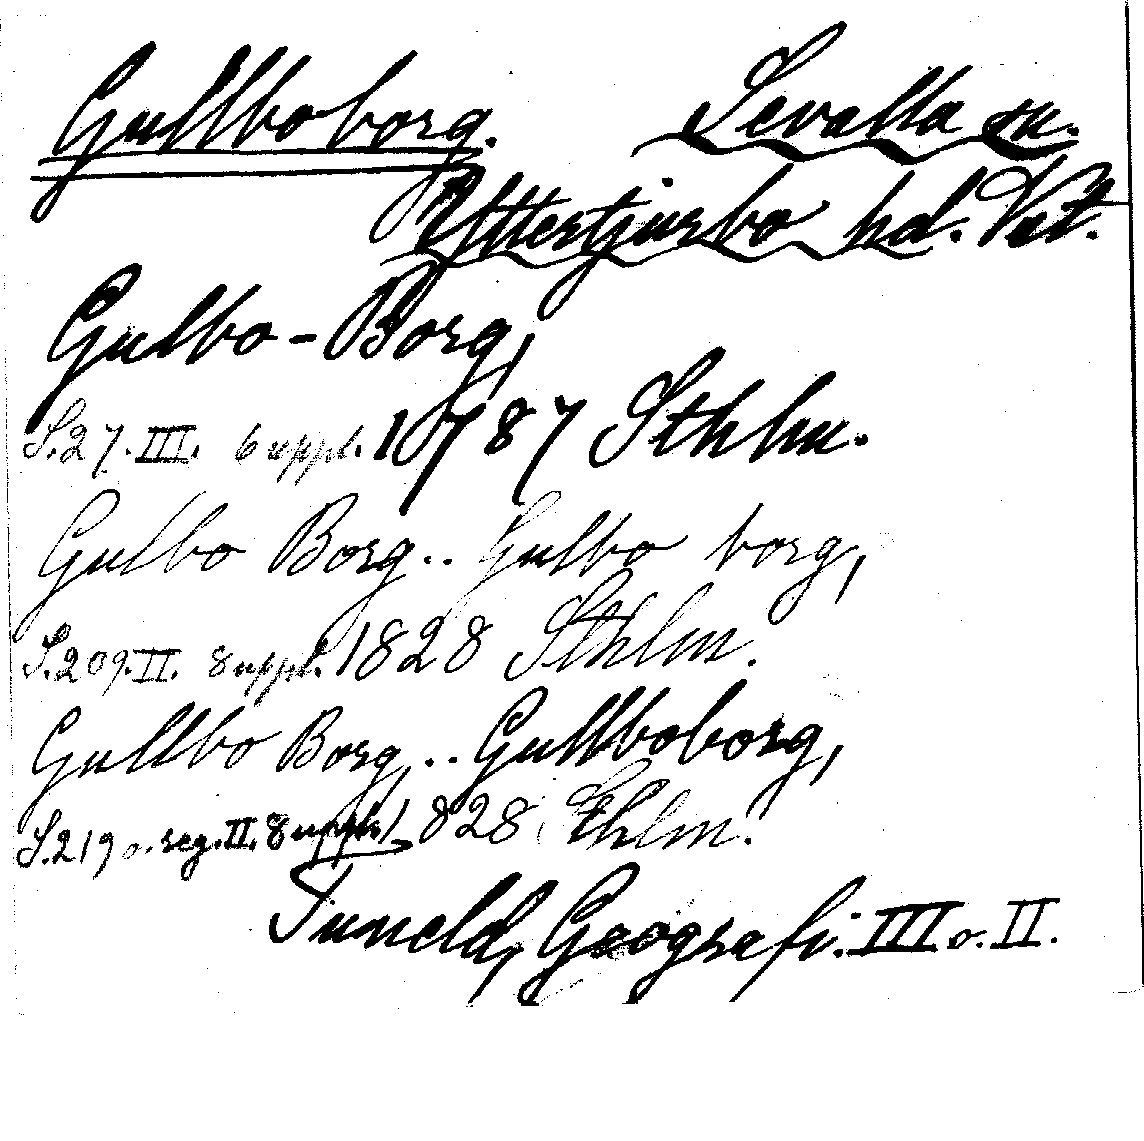 Gullboborg. Sevalla sn.
Yttertjurbo hd. Vstm.
Gulbo-Borg,
S.27. III. 6 uppl. 1787 Sthlm.
Gulbo Borg.. Gulbo borg,
S.209. II. 8 uppl. 1828 Sthlm.
Gullbo Borg,.. Gullboborg,
S.219 o. reg. II. 8 uppl. 1828 Sthlm.
Tuneld, Geografi. III o. II.